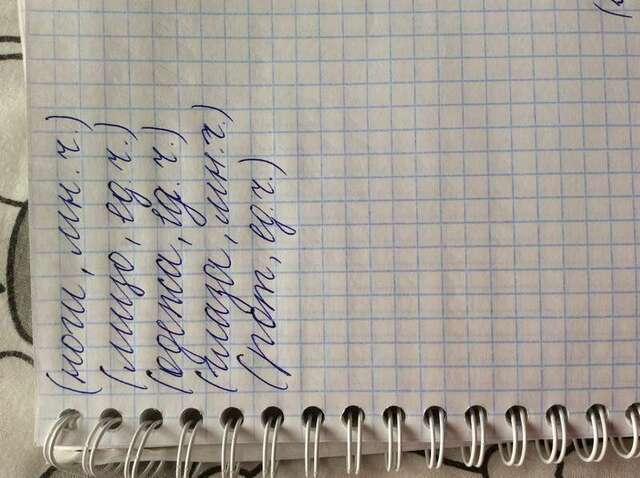 (ноги, мн. ч.)
(лицо, ед. ч.)
(одежа, ед. ч.)
(глаза, мн. ч.)
(рот, ед. ч.)